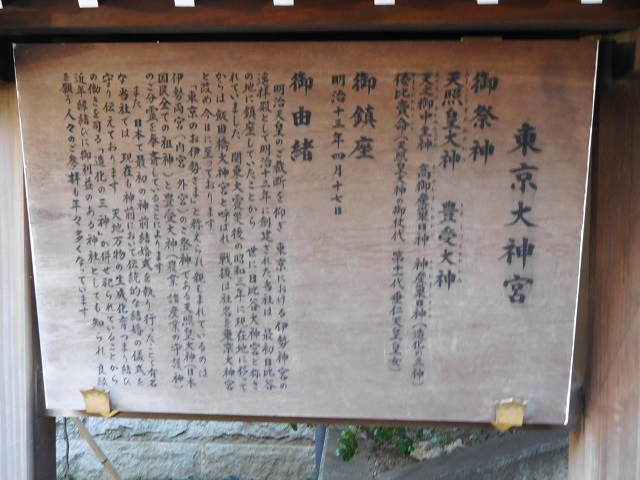 東京大神宮
御祭神
天照皇大神 豊受大神
天之御中主神 高御産巣日神 神産巣日神（造化の三神）
倭比賣命（天照皇大神の御杖代 第十一代垂仁天皇皇女）
御鎮座
明治十三年四月十七日
御由緒
明治天皇のご裁断を仰ぎ 東京における伊勢神宮の
遙拝殿として明治十三年に創建された当社は 最初日比谷
の地に鎮座していたことから 世に日比谷大神宮と称さ
れていました 関東大震災後の昭和三年に現在地に移って
からは飯田橋大神宮と呼ばれ 戦後は社名を東京大神宮
と改め今日に至っております
「東京のお伊勢さま」と称えられ親しまれているのは
伊勢両宮（内宮・外宮）のご祭神である天照皇大神（日本
国民全ての祖神）と豊受大神（農業 諸産業の守護神）
のご分霊を奉斎していることによります
また 日本で最初の神前結婚式を執り行ったことで有名
な当社では 現在も神前において伝統的な結婚の儀式を
守り伝えております 天地万物の生成化育つまり結び
の働きを司る「造化の三神」が併せ祀られていることから
近年縁結びに御利益のある神社としても知られ 良縁
を願う人々のご参拝も年々多くなっています